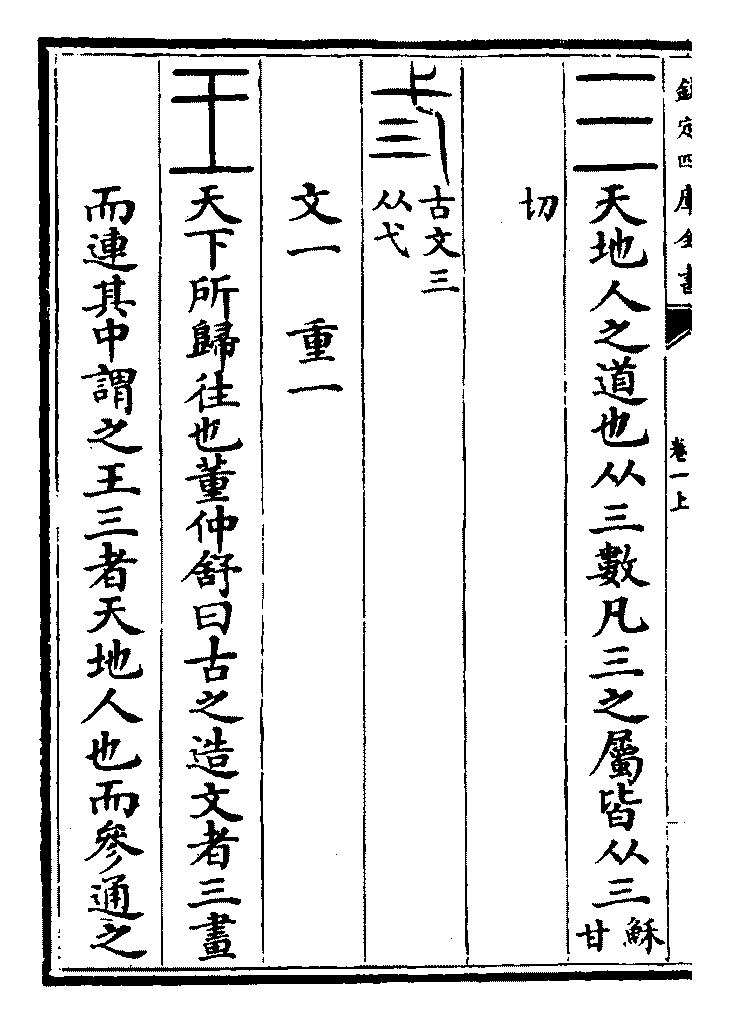 欽定四庫全書
卷一上
三 天地人之道也从三數凡三之屬皆从三 穌甘
切
弎 古文三从弋
文一 重一
王 天下所歸往也董仲舒曰古之造文者三畫
而連其中謂之王三者天地人也而參通之